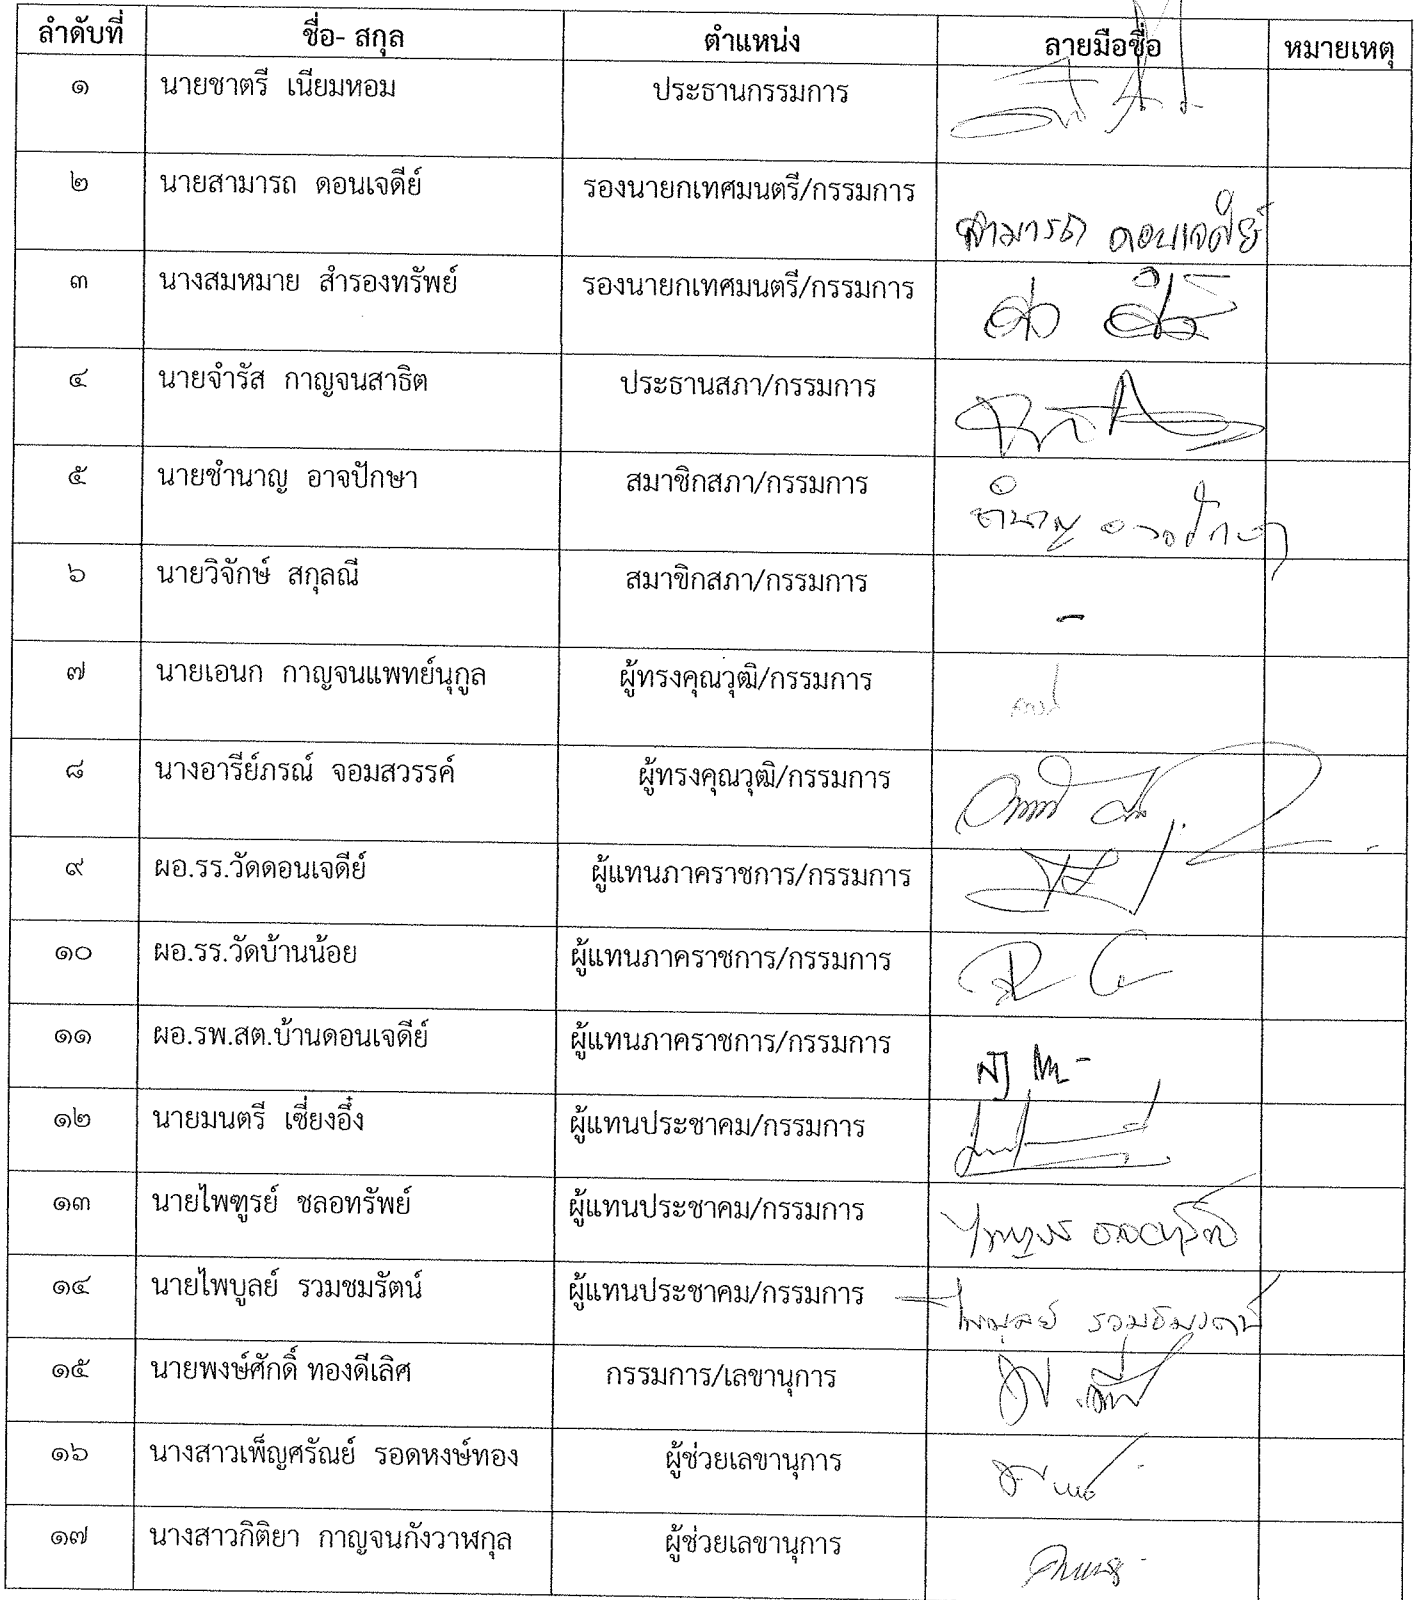 ลำดับที่ ชื่อ- สกุล ตำแหน่ง ลายมือชื่อ หมายเหตุ
๑ นายชาตรี เนียมหอม ประธานกรรมการ
๒ นายสามารถ ดอนเจดีย์ รองนายกเทศมนตรี/กรรมการ สามารถ ดอนเจดีย์
๓ นางสมหมาย สำรองทรัพย์ รองนายกเทศมนตรี/กรรมการ
๔ นายจำรัส กาญจนสาธิต ประธานสภา/กรรมการ
๕ นายชำนาญ อาจปักษา สมาชิกสภา/กรรมการ ชำนาญ อาจปักษา
๖ นายวิจักษ์ สกุลณี สมาขิกสภา/กรรมการ -
๗ นายเอนก กาญจนแพทย์นุกูล ผู้ทรงคุณวุฒิ/กรรมการ
๘ นางอารีย์ภรณ์ จอมสวรรค์ ผู้ทรงคุณวุฒิ/กรรมการ
๙ ผอ.รร.วัดดอนเจดีย์ ผู้แทนภาคราชการ/กรรมการ
๑๐ ผอ.รร.วัดบ้านน้อย ผู้แทนภาคราชการ/กรรมการ
๑๑ ผอ.รพ.สต.บ้านดอนเจดีย์ ผู้แทนภาคราชการ/กรรมการ
๑๒ นายมนตรี เซี่ยงอึ๋ง ผู้แทนประชาคม/กรรมการ
๑๓ นายไพฑูรย์ ชลอทรัพย์ ผู้แทนประชาคม/กรรมการ ไพฑูรย์ ชลอทรัพย์
๑๔ นายไพบูลย์ รวมชมรัตน์ ผู้แทนประชาคม/กรรมการ ไพบูลย์ รวมชมรัตน์
๑๕ นายพงษ์ศักดิ์ ทองดีเลิศ กรรมการ/เลขานุการ
๑๖ นางสาวเพ็ญศรัณย์ รอดหงษ์ทอง ผู้ช่วยเลขานุการ
๑๗ นางสาวกิติยา กาญจนกังวาฬกุล ผู้ช่วยเลขานุการ